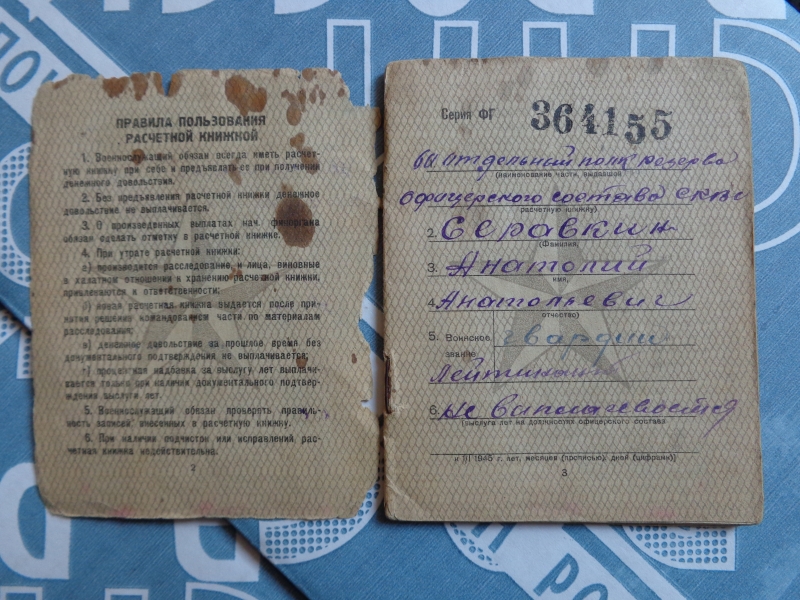 ПРАВИЛА ПОЛЬЗОВАНИЯ
РАСЧЕТНОЙ КНИЖКОЙ
1. Военнослужащий обязан всегда иметь расчет-
ную книжку при себе и предъявлять ее при получении
денежного довольствия.
2. Без предъявления расчетной книжки денежное
довольствие не выплачивается.
3. О произведенных выплатах нач. финоргана
обязан сделать отметку в расчетной книжке.
4. При утрате расчетной книжки:
а) производится расследование, и лица, виновные
в халатном отношении к хранению расчетной книжки,
привлекаются к ответственности;
б) новая расчетная книжка выдается после при-
нятия решения командованием части по материалам
расследования;
в) денежное довольствие за прошлое время без
документального подтверждения не выплачивается;
г) процентная надбавка за выслугу лет выплачи-
вается только при наличии документального подтвер-
ждения выслуги лет.
5. Военнослужащий обязан проверять правиль-
ность записей внесенных в расчетную книжку.
6. При наличии подчисток или исправлений рас-
четная книжка недействительна.
2
Серия ФГ 364155
отдельный полк резерва
(наименование части, выдавшей
офицерского состава
расчетную книжку)
2. Серавкин
(Фамилия)
3. Анатолий
имя,
4. Анатольевич
отчество)
5. Воинское гвардии
звание
Лейтинант
6. не
(выслуга лет на должностях офицерского состава
к 1/I 1945 г. лет, месяцев (прописью), дней (цифрами))
3